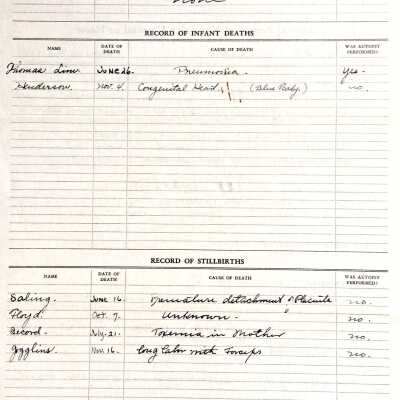 None
RECORD OF INFANT DEATHS
NAME DATE OF DEATH CAUSE OF DEATH WAS AUTOPSY PERFORMED?
Thomas June 26. Pneumonia. Yes-
Henderson. Nov. 4. Congenital (Blue Baby.) no.
RECORD OF STILLBIRTHS
NAME DATE OF DEATH CAUSE OF DEATH WAS AUTOPSY PERFORMED?
Saling. June 16. Premature detachment of Placenta no.
Floyd. Oct. 7. Unknown. no.
Record. July-21. Toxemia in Mother no.
Nov. 16. Long Labor with Forceps no.